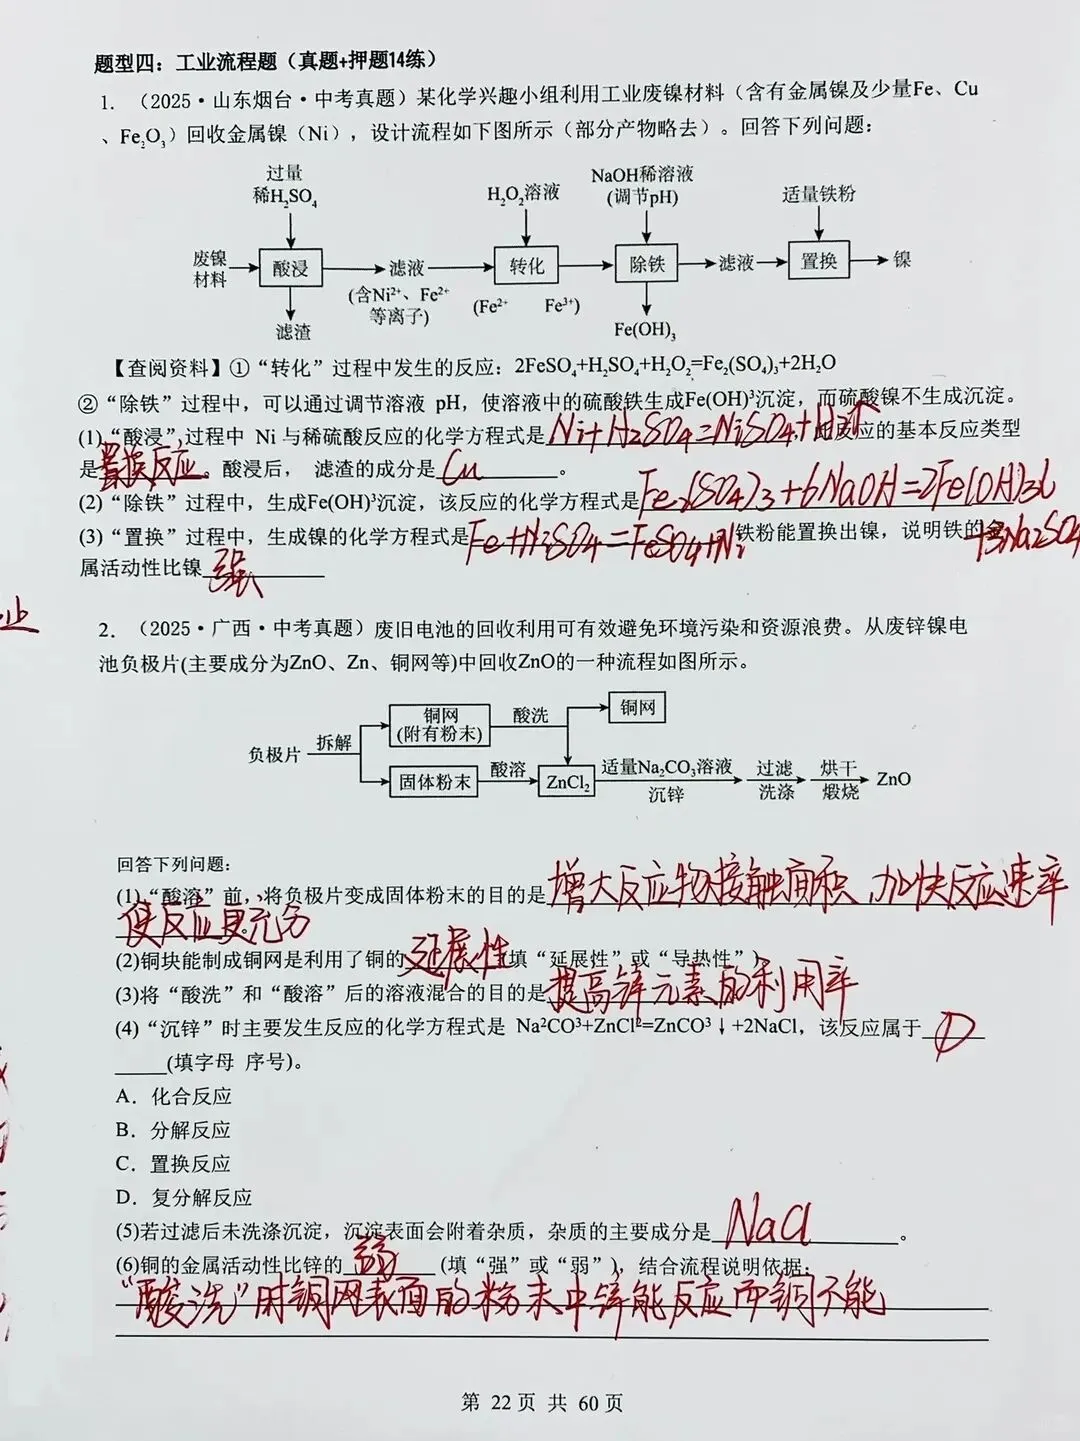 题型四：工业流程题（真题+押题14练）
1. （2025·山东烟台·中考真题）某化学兴趣小组利用工业废镍材料（含有金属镍及少量Fe、Cu
、Fe₂O₃）回收金属镍（Ni），设计流程如下图所示（部分产物略去）。回答下列问题：
过量
稀H₂SO₄
H₂O₂溶液
NaOH稀溶液
(调节pH)
适量铁粉
废镍
材料
酸浸
滤液
转化
除铁
滤液
置换
镍
(含Ni²⁺、Fe²⁺
等离子)
(Fe²⁺ Fe³⁺)
滤渣
Fe(OH)₃
【查阅资料】①“转化”过程中发生的反应：2FeSO₄+H₂SO₄+H₂O₂=Fe₂(SO₄)₃+2H₂O
②“除铁”过程中，可以通过调节溶液 pH，使溶液中的硫酸铁生成Fe(OH)³沉淀，而硫酸镍不生成沉淀。
(1)“酸浸”过程中 Ni 与稀硫酸反应的化学方程式是 Ni+H₂SO₄=NiSO₄+H₂↑，此反应的基本反应类型
是 置换反应 。酸浸后， 滤渣的成分是 Cu 。
(2)“除铁”过程中，生成Fe(OH)³沉淀，该反应的化学方程式是 Fe₂(SO₄)₃+6NaOH=2Fe(OH)₃↓
+3Na₂SO₄
(3)“置换”过程中，生成镍的化学方程式是 Fe+NiSO₄=FeSO₄+Ni 铁粉能置换出镍，说明铁的金
属活动性比镍 强
业
2. （2025·广西·中考真题）废旧电池的回收利用可有效避免环境污染和资源浪费。从废锌镍电
池负极片(主要成分为ZnO、Zn、铜网等)中回收ZnO的一种流程如图所示。
负极片
拆解
铜网
(附有粉末)
酸洗
铜网
固体粉末
酸溶
ZnCl₂
适量Na₂CO₃溶液
沉锌
过滤
洗涤
烘干
煅烧
ZnO
回答下列问题：
(1)“酸溶”前，将负极片变成固体粉末的目的是 增大反应物接触面积，加快反应速率
使反应更充分
(2)铜块能制成铜网是利用了铜的 延展性 填“延展性”或“导热性”)。
(3)将“酸洗”和“酸溶”后的溶液混合的目的是 提高锌元素的利用率
(4)“沉锌”时主要发生反应的化学方程式是 Na²CO³+ZnCl²=ZnCO³↓+2NaCl，该反应属于 D
(填字母 序号)。
A．化合反应
B．分解反应
C．置换反应
D．复分解反应
(5)若过滤后未洗涤沉淀，沉淀表面会附着杂质，杂质的主要成分是 NaCl 。
(6)铜的金属活动性比锌的 弱 (填“强”或“弱”)，结合流程说明依据：
“酸洗”时铜网表面的粉末中锌能反应而铜不能
第 22 页 共 60 页